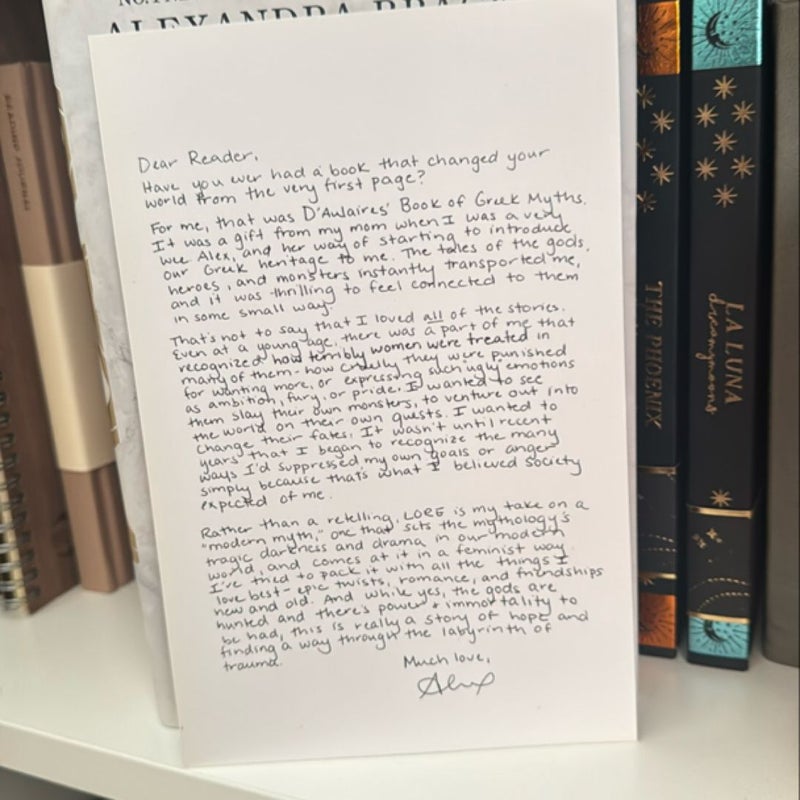 ALEXANDRA BRA
Dear Reader,
Have you ever had a book that changed your
world from the very first page?
For me, that was D'Aulaires' Book of Greek Myths.
It was a gift from my mom when I was a very
wee Alex, and her way of starting to introduce
our Greek heritage to me. The tales of the gods,
heroes, and monsters instantly transported me,
and it was thrilling to feel connected to them
in some small way.
That's not to say that I loved all of the stories.
Even at a young age, there was a part of me that
recognized how terribly women were treated in
many of them - how cruelly they were punished
for wanting more, or expressing such ugly emotions
as ambition, fury, or pride. I wanted to see
them slay their own monsters, to venture out into
the world on their own quests. I wanted to
change their fates. It wasn't until recent
years that I began to recognize the many
ways I'd suppressed my own goals or anger
simply because that's what I believed society
expected of me.
Rather than a retelling, LORE is my take on a
"modern myth," one that sets the mythology's
tragic darkness and drama in our modern
world, and comes at it in a feminist way.
I've tried to pack it with all the things I
love best - epic twists, romance, and friendships
new and old. And while yes, the gods are
hunted and there's power + immortality to
be had, this is really a story of hope and
finding a way through the labyrinth of
trauma.
Much love,
Alex
THE PHOENIX
LA LUNA
dreamymoons
READING JOURNAL